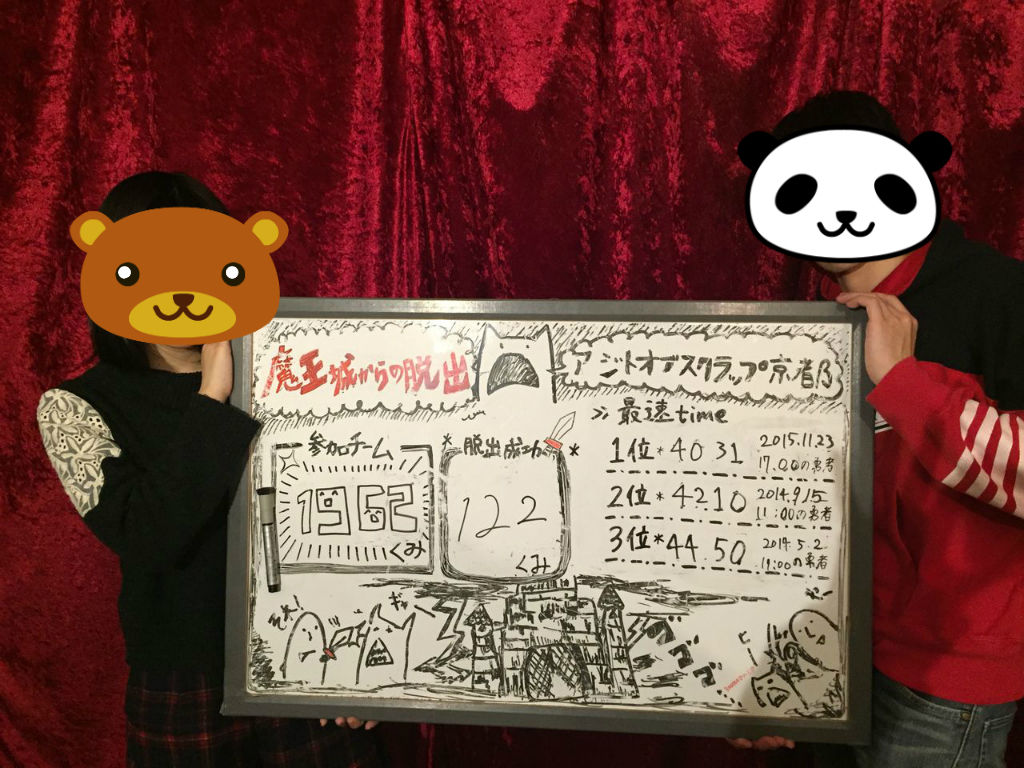 魔王城からの脱出
アジトオブスクラップ京都
最速time
参加チーム
1962
くみ
脱出成功
122
くみ
1位*40 31
2015.11.23
17:00の勇者
2位*42 10
2014.9.15
11:00の勇者
3位*44 50
2014.5.2
19:00の勇者
ゴゴゴゴ